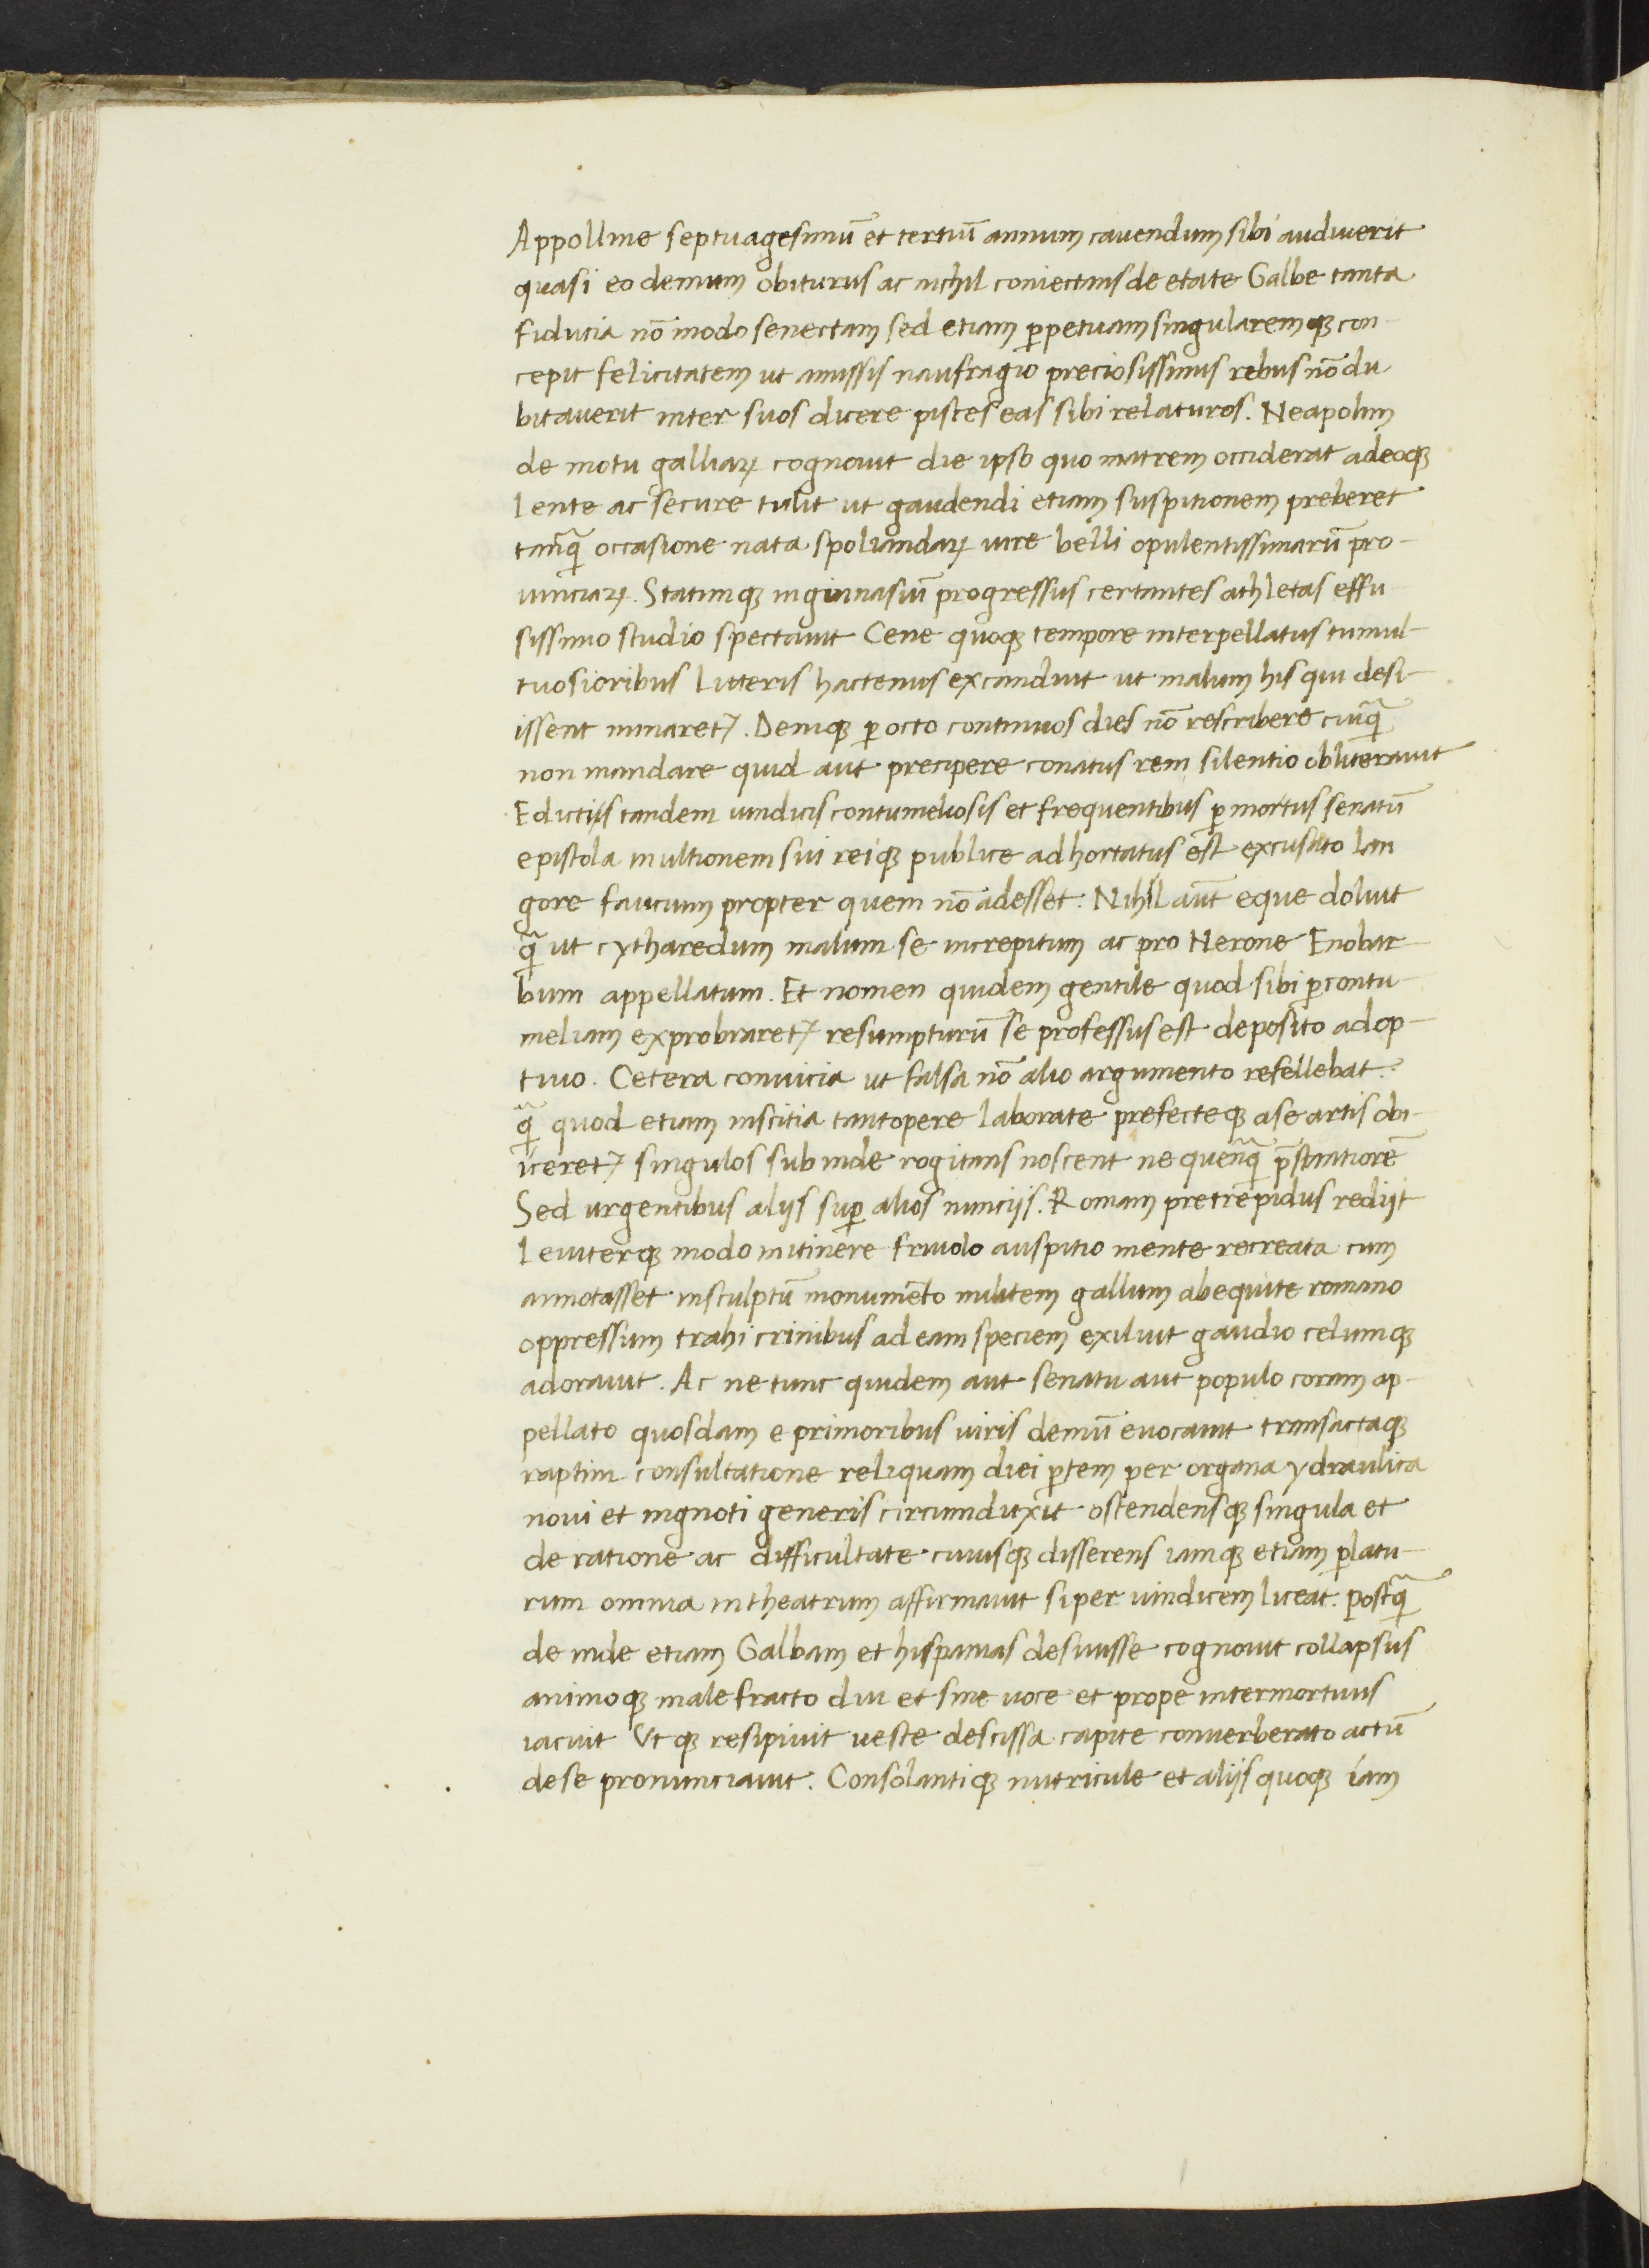 Appolline septuagesimū et tertiū annum cauendum sibi audiuerit
quasi eo demum obiturus ac nichil coniectans de etate Galbe tanta
fiducia nō modo senectam sed etiam ꝑpetuam singularemqꝫ con-
cepit felicitatem ut amissis naufragio preciosissimis rebus nō du
bitauerit inter suos dicere pisces eas sibi relaturos. Neapolim
de motu galliaꝝ cognouit die ipso quo matrem occiderat adeoqꝫ
lente ac secure tulit ut gaudendi etiam suspitionem preberet
tanq̄ occasione nata spoliandaꝝ iure belli opulentissimarū pro-
uinciaꝝ. Statimqꝫ in gimnasiū progressus certantes athletas effu
sissimo studio spectauit Cene quoqꝫ tempore interpellatus tumul-
tuosioribus litteris hactenus excanduit ut malum his qui desi-
issent minaret᷑. Deniqꝫ ꝑ octo continuos dies nō rescribere cuiq̄
non mandare quid aut precipere conatus rem silentio obliterauit
Edictis tandem uindicis contumeliosis et frequentibus ꝑmotus senatū
epistola in ultionem sui reiqꝫ publice adhortatus est excusato lan
gore faucium propter quem nō adesset. Nihil aūt eque doluit
q̄ ut cytharedum malum se increpitum ac pro Nerone Enobar
bum appellatum. Et nomen quidem gentile quod sibi ꝑ contu-
meliam exprobraret᷑ resumpturū se professus est deposito adop-
tiuo. Cetera conuicia ut falsa nō alio argumento refellebat.
q̄ quod etiam inscitia tantopere laborate prefecteqꝫ a se artis obi-
iceret᷑ singulos subinde rogitans noscent ne quenq̄ p̄stantiorē
Sed urgentibus alijs suꝑ alios nuncijs. Romam pretrepidus redijt
Leuiterqꝫ modo in itinere friuolo auspitio mente recreata cum
annotasset insculptū monumēto militem gallum ab equite romano
oppressum trahi crinibus ad eam speciem exiluit gaudio celumqꝫ
adorauit. Ac ne tunc quidem aut senatu aut populo coram ap-
pellato quosdam e primoribus uiris demū euocauit transactaqꝫ
raptim consultatione reliquam diei ꝑtem per organa ydraulica
noui et ingnoti generis circumduxit ostendensqꝫ singula et
de ratione ac difficultate cuiusqꝫ disserens iamqꝫ etiam ꝑlatu-
rum omnia in theatrum affirmauit si per uindicem liceat. postq̄
de inde etiam Galbam et hispanias desiuisse cognouit collapsus
animoqꝫ male fracto diu et sine uoce et prope intermortuus
iacuit Utqꝫ resipiuit ueste descissa capite conuerberato actū
de se pronunciauit. Consolantiqꝫ nutricule et alijs quoqꝫ iam